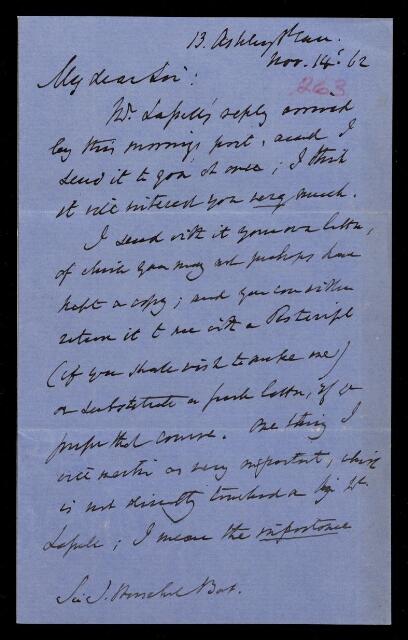 13. Ashley Place.
Nov. 14. 62
263
My dear Sir:
Mr. Lassell's reply arrived
by this morning's post, and I
send it to you at once; I think
it will interest you very much.
I send with it your own letter,
of which you may not perhaps have
kept a copy; and you can either
return it to me with a Postscript
(if you should wish to make one)
or substitute a fresh letter, if you
prefer that course. One thing I
will mention as very important, which
is not directly touched on by Mr.
Lassell; I mean the importance
Sir J. Herschel Bart.